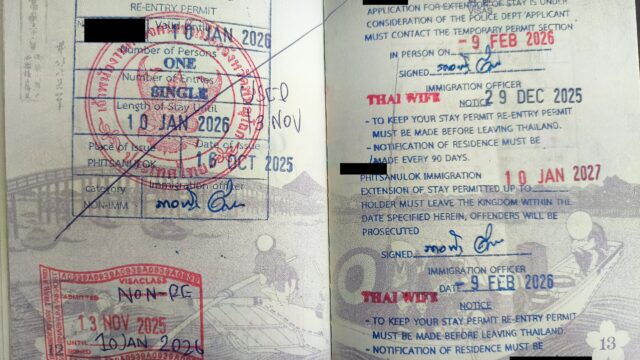 RE-ENTRY PERMIT
No. Valid Until 10 JAN 2026
Number of Persons
ONE
Number of Entries
SINGLE
Length of Stay Until
10 JAN 2026
13 NOV
Place of Issue Date of Issue
PHITSANULOK 16 OCT 2025
category Immigration officer
NON-IMM
ประเทศไทย
VISACLASS
ADMITTED NON-RE
13 NOV 2025
UNTIL 10 JAN 2026
APPLICATION FOR EXTENSION OF STAY IS UNDER
CONSIDERATION OF THE POLICE DEPT 'APPLICANT
MUST CONTACT THE TEMPORARY PERMIT SECTION
IN PERSON ON -9 FEB 2026
SIGNED
IMMIGRATION OFFICER
THAI WIFE NOTICE 29 DEC 2025
- TO KEEP YOUR STAY PERMIT RE-ENTRY PERMIT
MUST BE MADE BEFORE LEAVING THAILAND.
- NOTIFICATION OF RESIDENCE MUST BE
MADE EVERY 90 DAYS.
PHITSANULOK IMMIGRATION 10 JAN 2027
EXTENSION OF STAY PERMITTED UP TO
HOLDER MUST LEAVE THE KINGDOM WITHIN THE
DATE SPECIFIED HEREIN, OFFENDERS WILL BE
PROSECUTED
SIGNED
IMMIGRATION OFFICER
DATE -9 FEB 2026
THAI WIFE
NOTICE
- TO KEEP YOUR STAY PERMIT RE-ENTRY PERMIT
MUST BE MADE BEFORE LEAVING THAILAND.
- NOTIFICATION OF RESIDENCE MUST BE
13